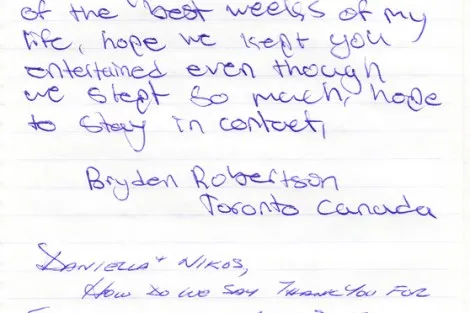 of the best weeks of my
life, hope we kept you
entertained even though
we slept so much, hope
to stay in contact,
Bryden Robertson
Toronto Canada
DANIELLA + NIKOS,
HOW DO WE SAY THANK YOU FOR